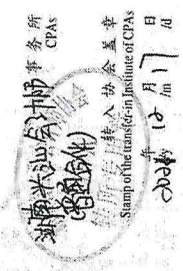 湖南兴汕会计师事务所
(普通合伙) CPAs
转入协会盖章
Stamp of the transfer-in Institute of CPAs
年 12 月 17 日
/m /d